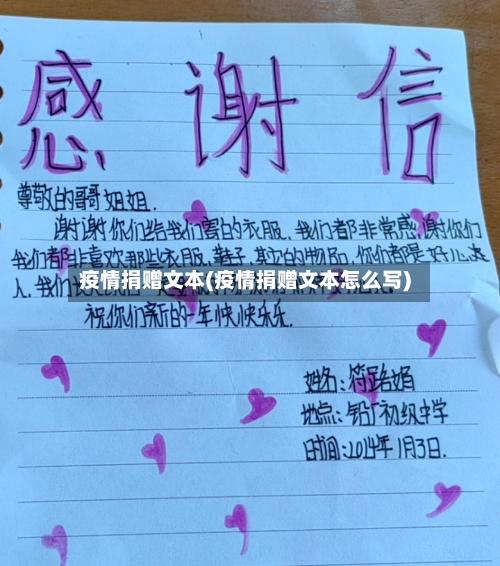 感谢信
尊敬的哥姐姐.
谢谢你们给我们寄的衣服.我们都非常感谢你们
我们都非喜欢那些衣服.鞋子.其它的物品.你们都是好心
人.我们
疫情捐赠文本(疫情捐赠文本怎么写)
祝你们新的一年快快乐乐.
姓名:符娟
地点:铅厂初级中学
时间:2014年1月3日.